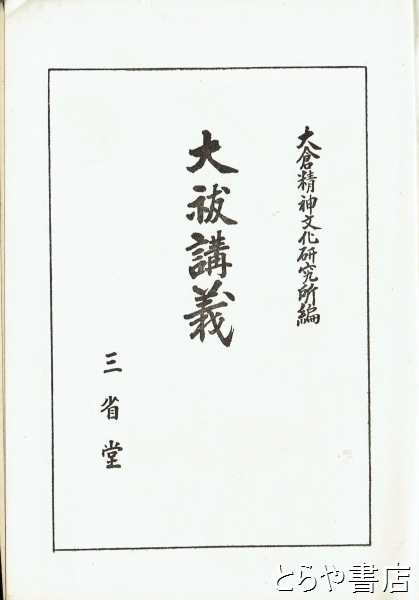 大倉精神文化研究所編
大祓講義
三省堂
とらや書店